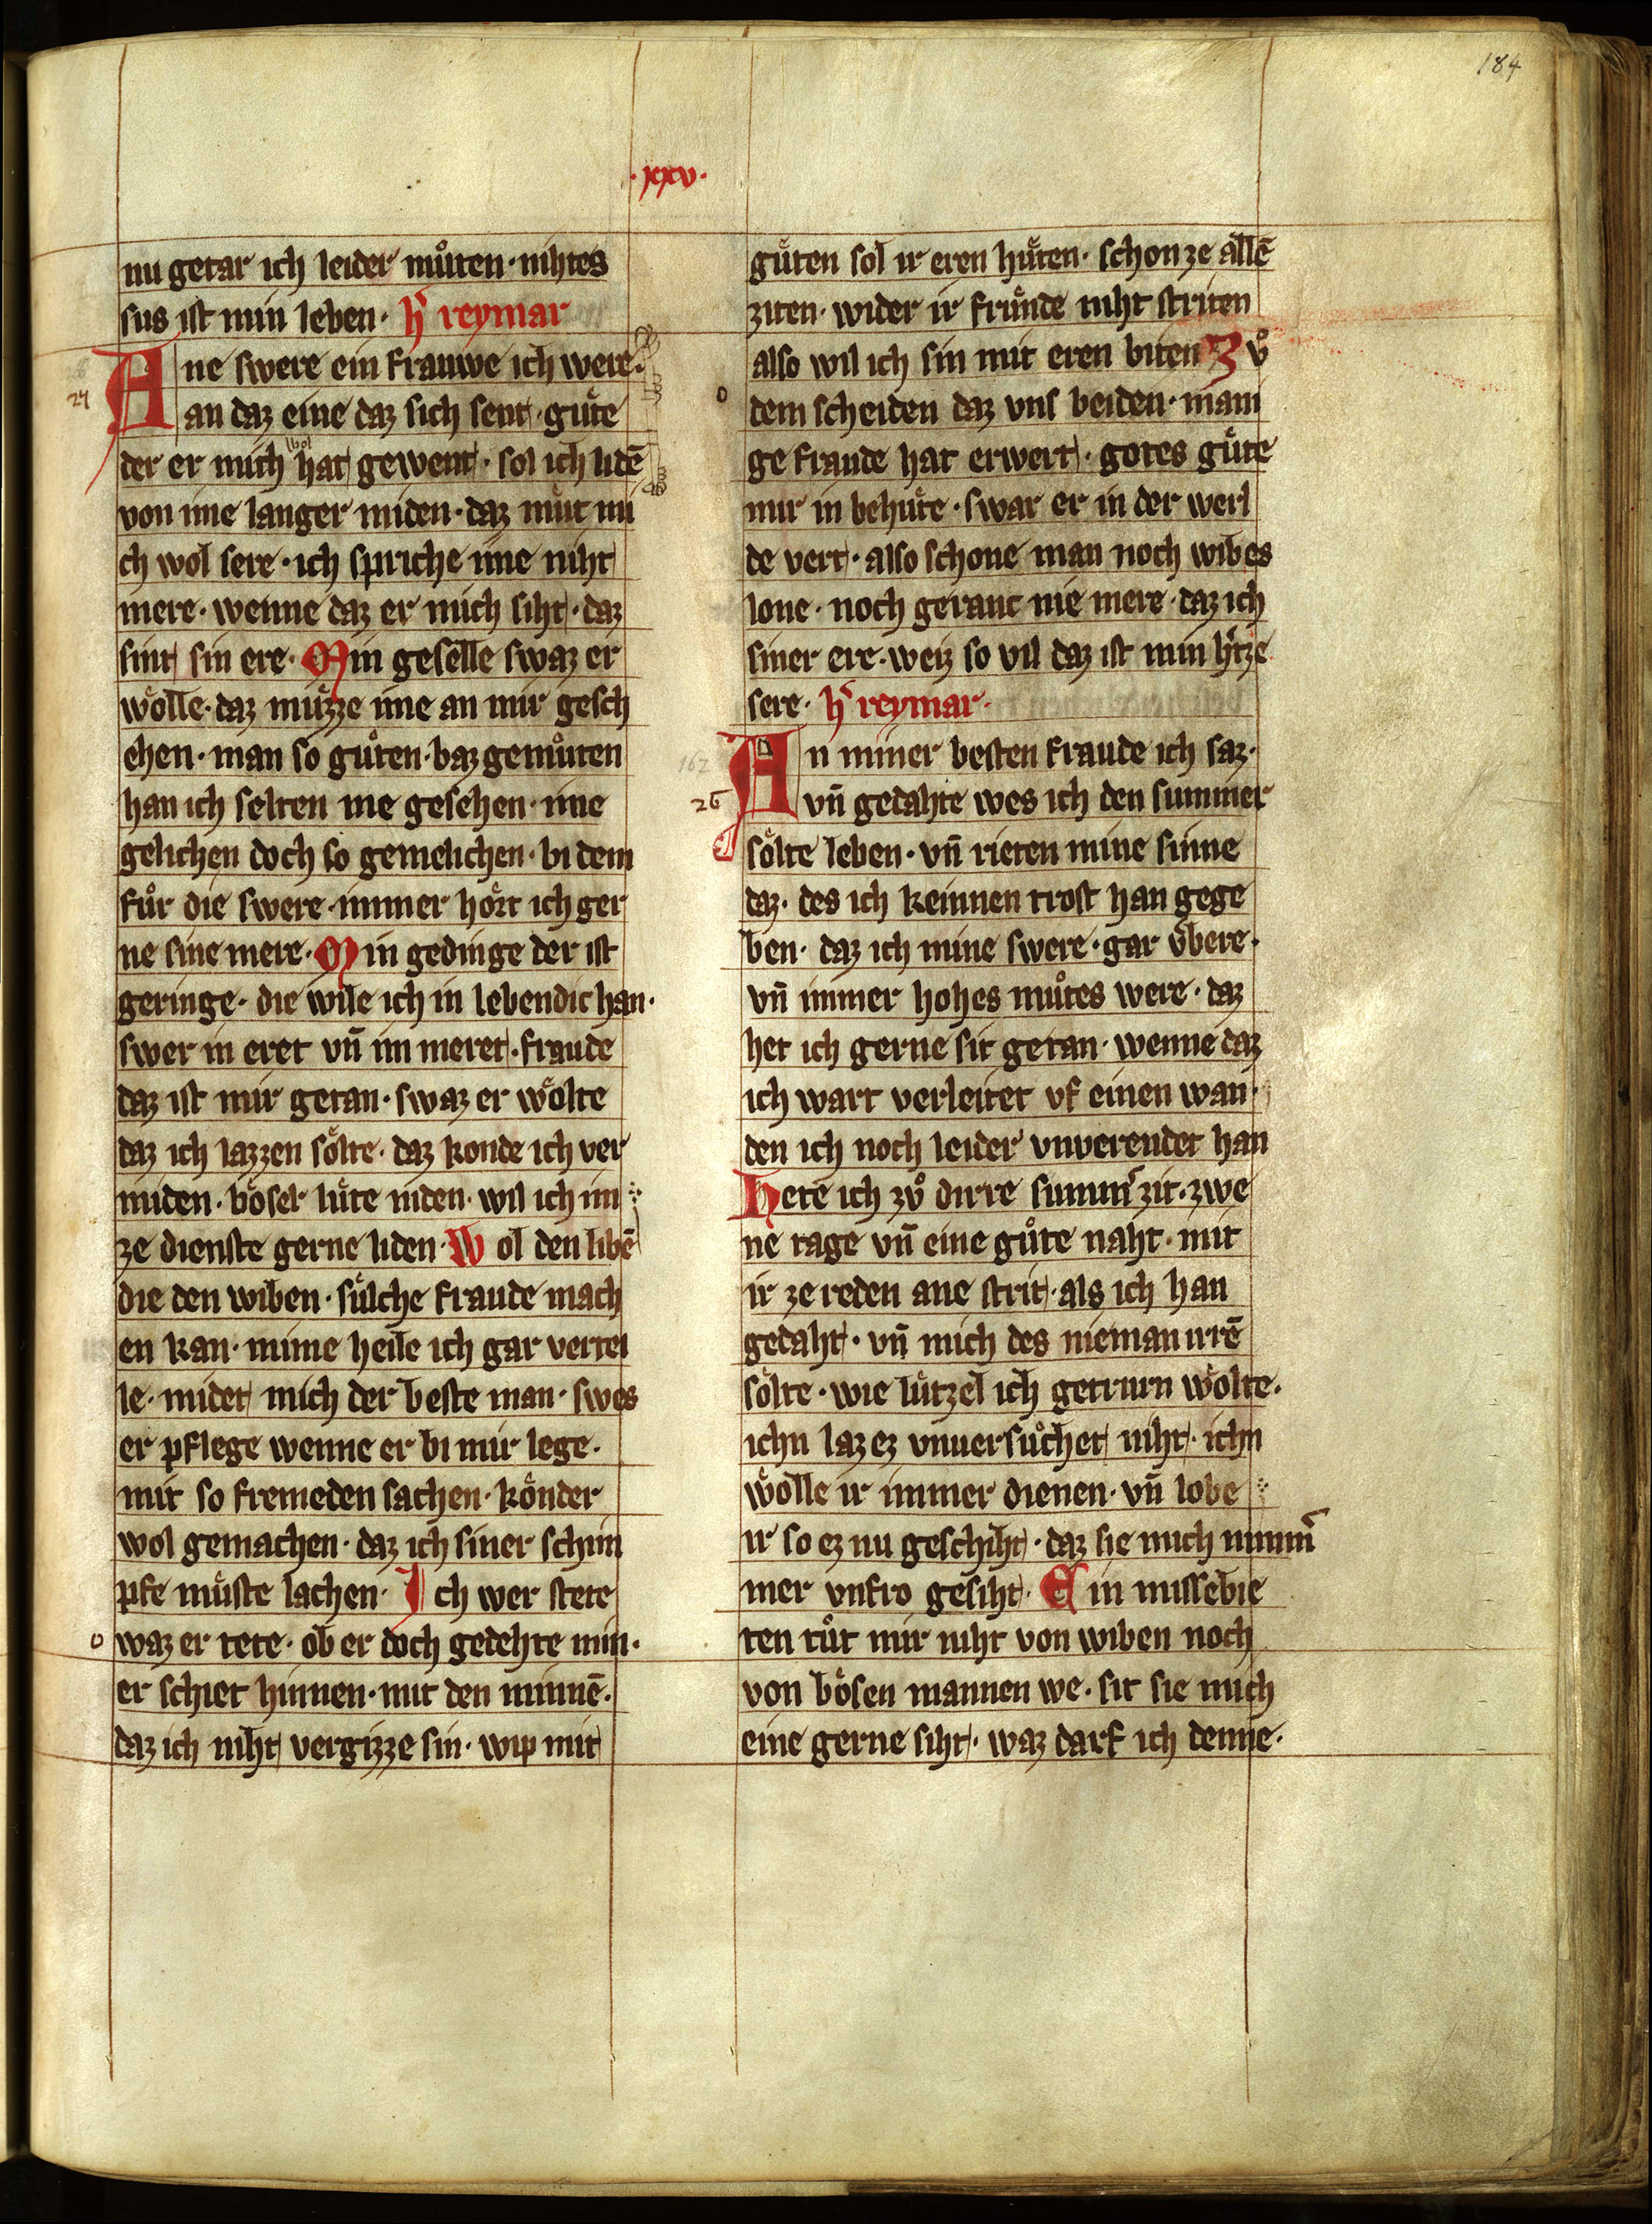 184
·xxv·
nu getar ich leider mu̇ten· nihtes
sus ist min leben· h̾ reymar
Ane swere ein frauwe ich were·
24
an daz eine daz sich sent· gu̇te
der er mich wol hat gewent· sol ich lidē
von ime langer miden· daz mu̇t mi
ch wol sere· ich spriche ime niht
mere· wenne daz er mich siht· daz
sint sin ere· Min geselle swaz er
wölle· daz mu̇zze ime an mir gesch
ehen· man so gůten· baz gemůten
han ich selten me gesehen· ime
gelichen doch so gemelichen· bi dem
fůr die swere· immer hört ich ger
ne sine mere· Min gedinge der ist
geringe· die wile ich in lebendic han·
swer in eret vn̄ im meret· fraude
daz ist mir getan· swaz er wölte
daz ich lazzen sölte· daz konde ich ver
miden· böser lůte niden· wil ich im
ze dienste gerne liden· Wol den libē
die den wiben· sůlche fraude mach
en kan· mime heile ich gar vertei
le· midet mich der beste man· swes
er pflege wenne er bi mir lege·
mit so fremeden sachen· könder
wol gemachen· daz ich siner schim
pfe můste lachen· Ich wer stete
waz er tete· ob er doch gedehte min·
er schiet hinnen· mit den minnē·
daz ich niht vergizze sin· wip mit
gůten sol ir eren hůten· schon ze allē
ziten· wider ir frůnde niht striten
also wil ich sin mit eren biten Zů
dem scheiden daz vns beiden· mani
ge fraude hat erwert· gotes gůte
mir in behůte· swar er in der werl
de vert· also schone man noch wibes
lone· noch geranc nie mere· daz ich
siner ere· weiz so vil daz ist min h̾tze
sere· h̾ reymar·
An miner besten fraude ich saz·
162
26
vn̄ gedahte wes ich den summer
sölte leben· vn̄ rieten mine sinne
daz· des ich keinnen trost han gege
ben· daz ich mine swere· gar v̾bere·
vn̄ immer hohes můtes were· daz
het ich gerne sit getan· wenne daz
ich wart verleitet vf einen wan·
den ich noch leider vnverendet han
Hete ich zů dirre summ̾ zit· zwe
ne tage vn̄ eine gůte naht· mit
ir ze reden ane strit· als ich han
gedaht· vn̄ mich des nieman irrē
sölte· wie lůtzel ich getrurn wölte·
ichn laz ez vnuersůchet niht· ichn
wölle ir immer dienen· vn̄ lobe
ir so ez nu geschiht· daz sie mich nimm̾
mer vnfro gesiht· Ein missebie
ten tůt mir niht von wiben noch
von bösen mannen we· sit sie mich
eine gerne siht· waz darf ich denne·